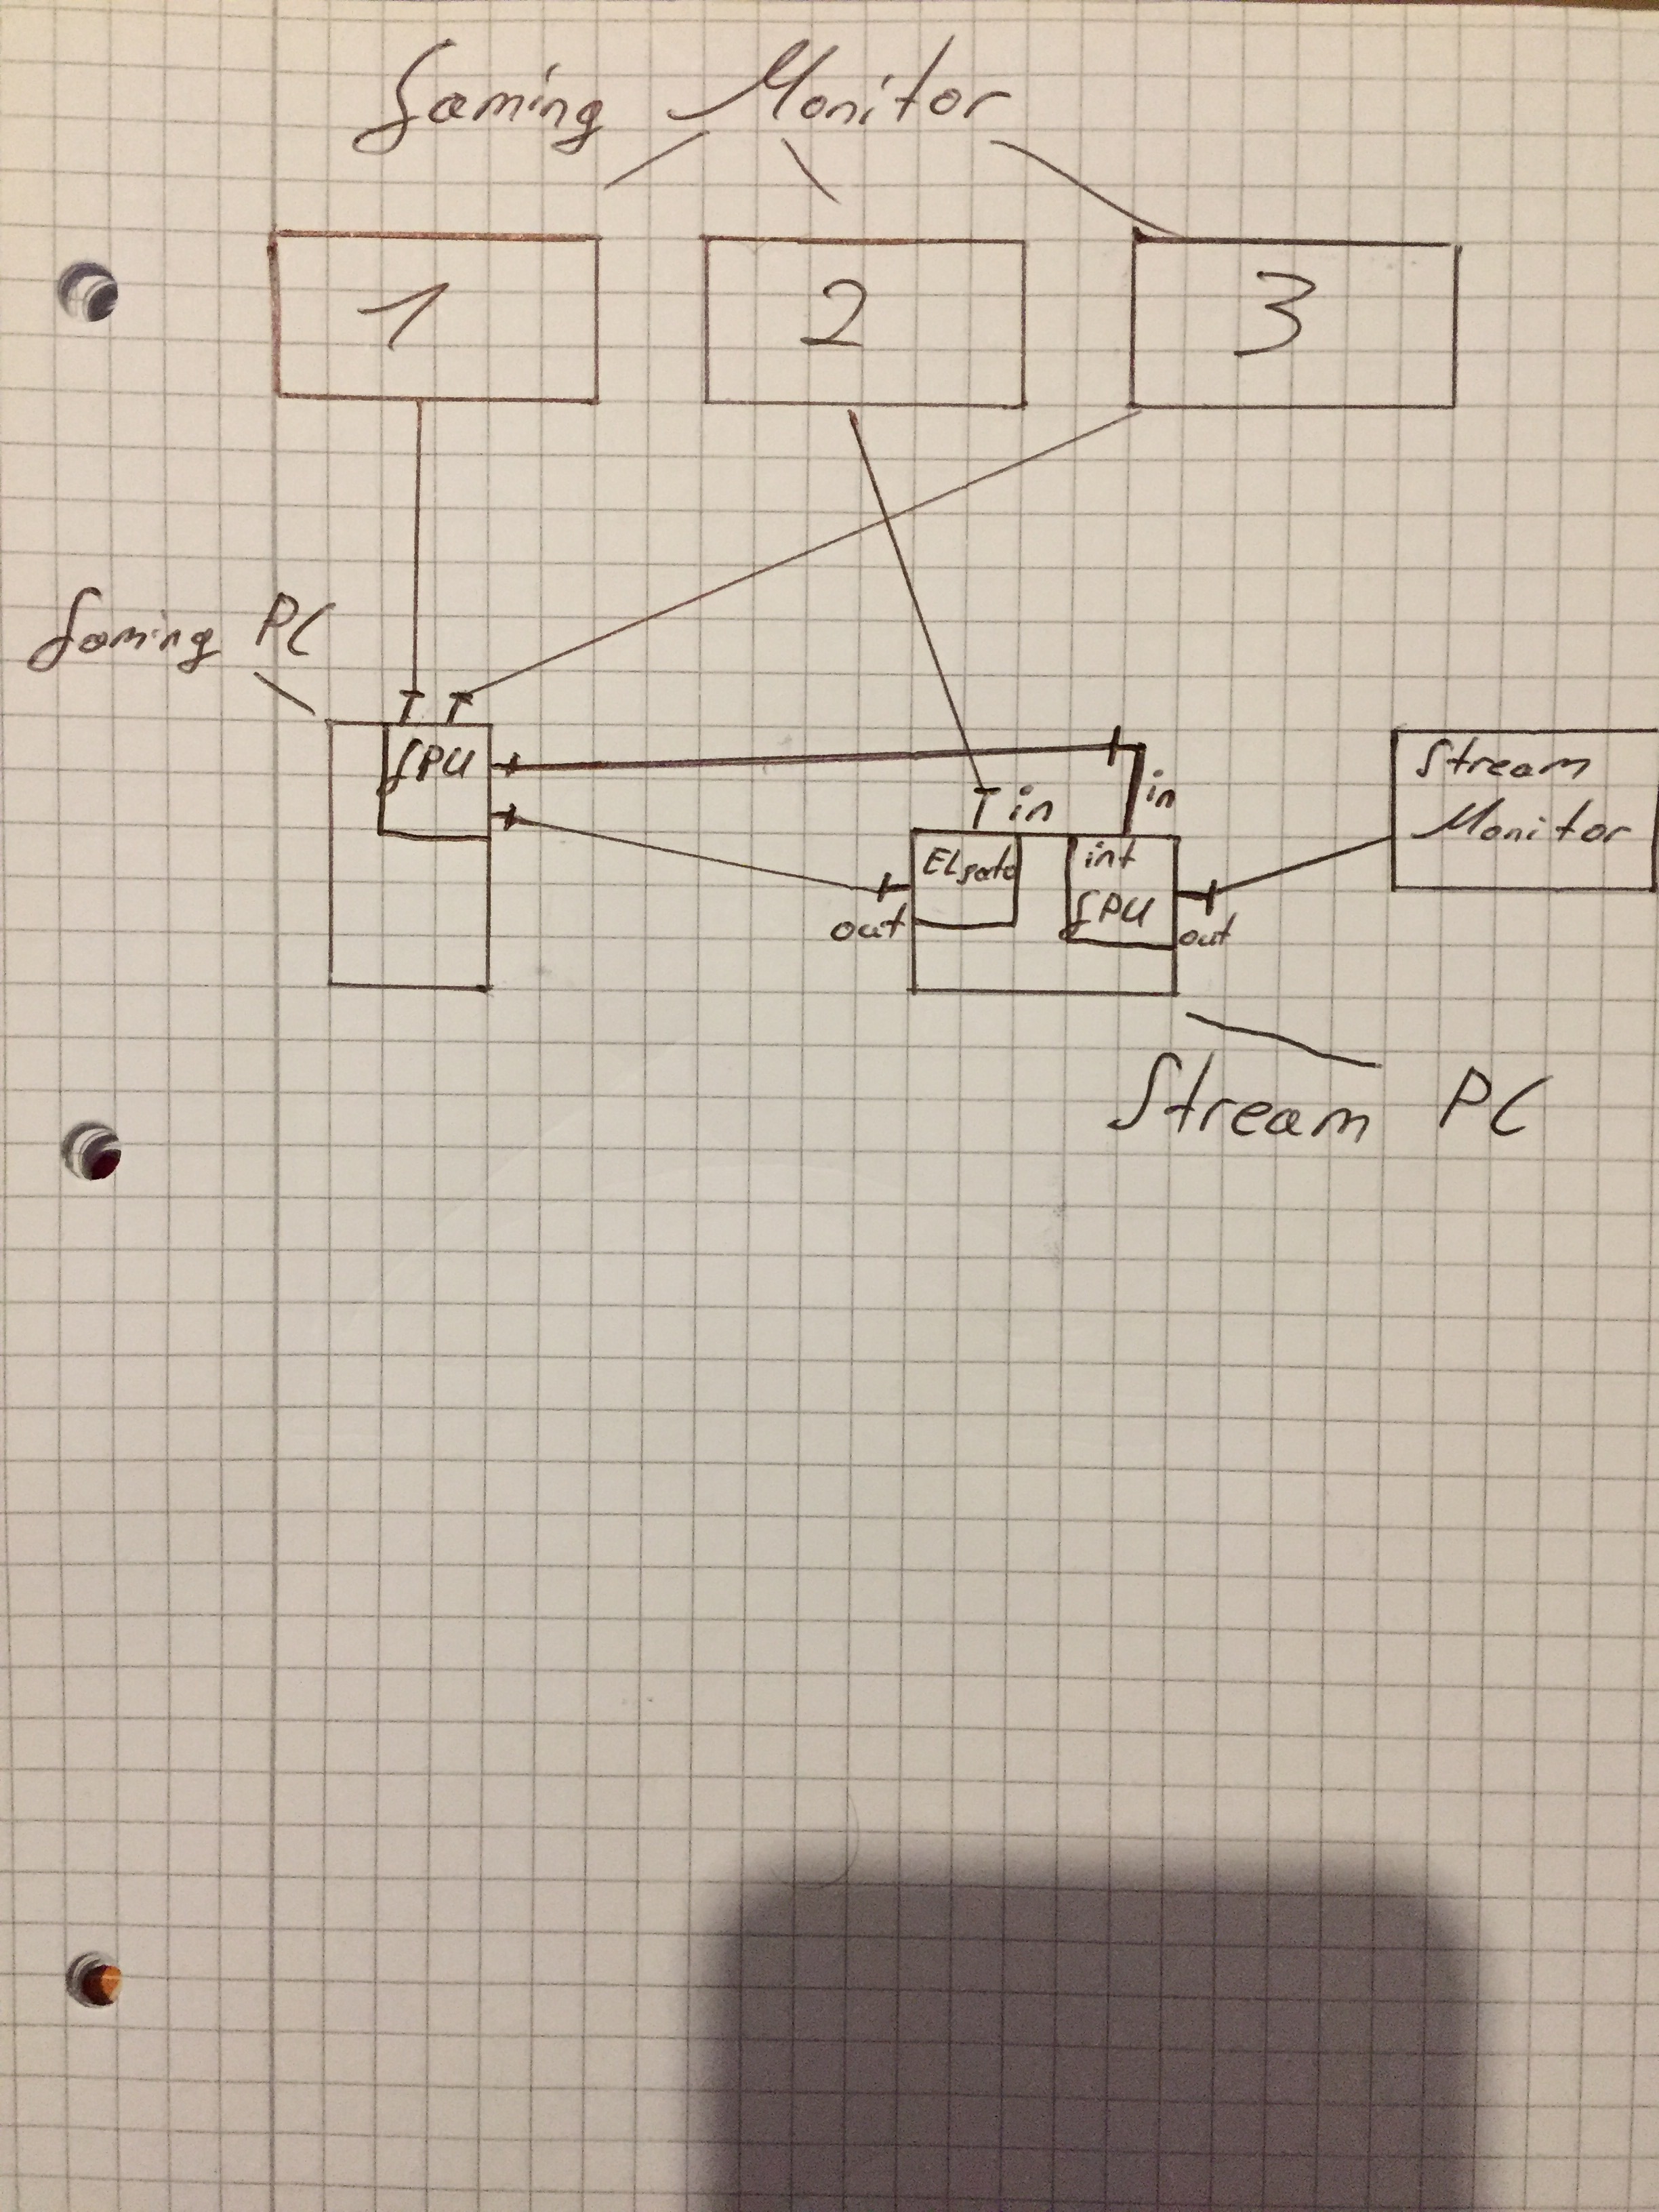 Gaming Monitor
1 2 3
Gaming PC
GPU
in
in
Stream
Monitor
ELgato
int
GPU
out
out
Stream PC